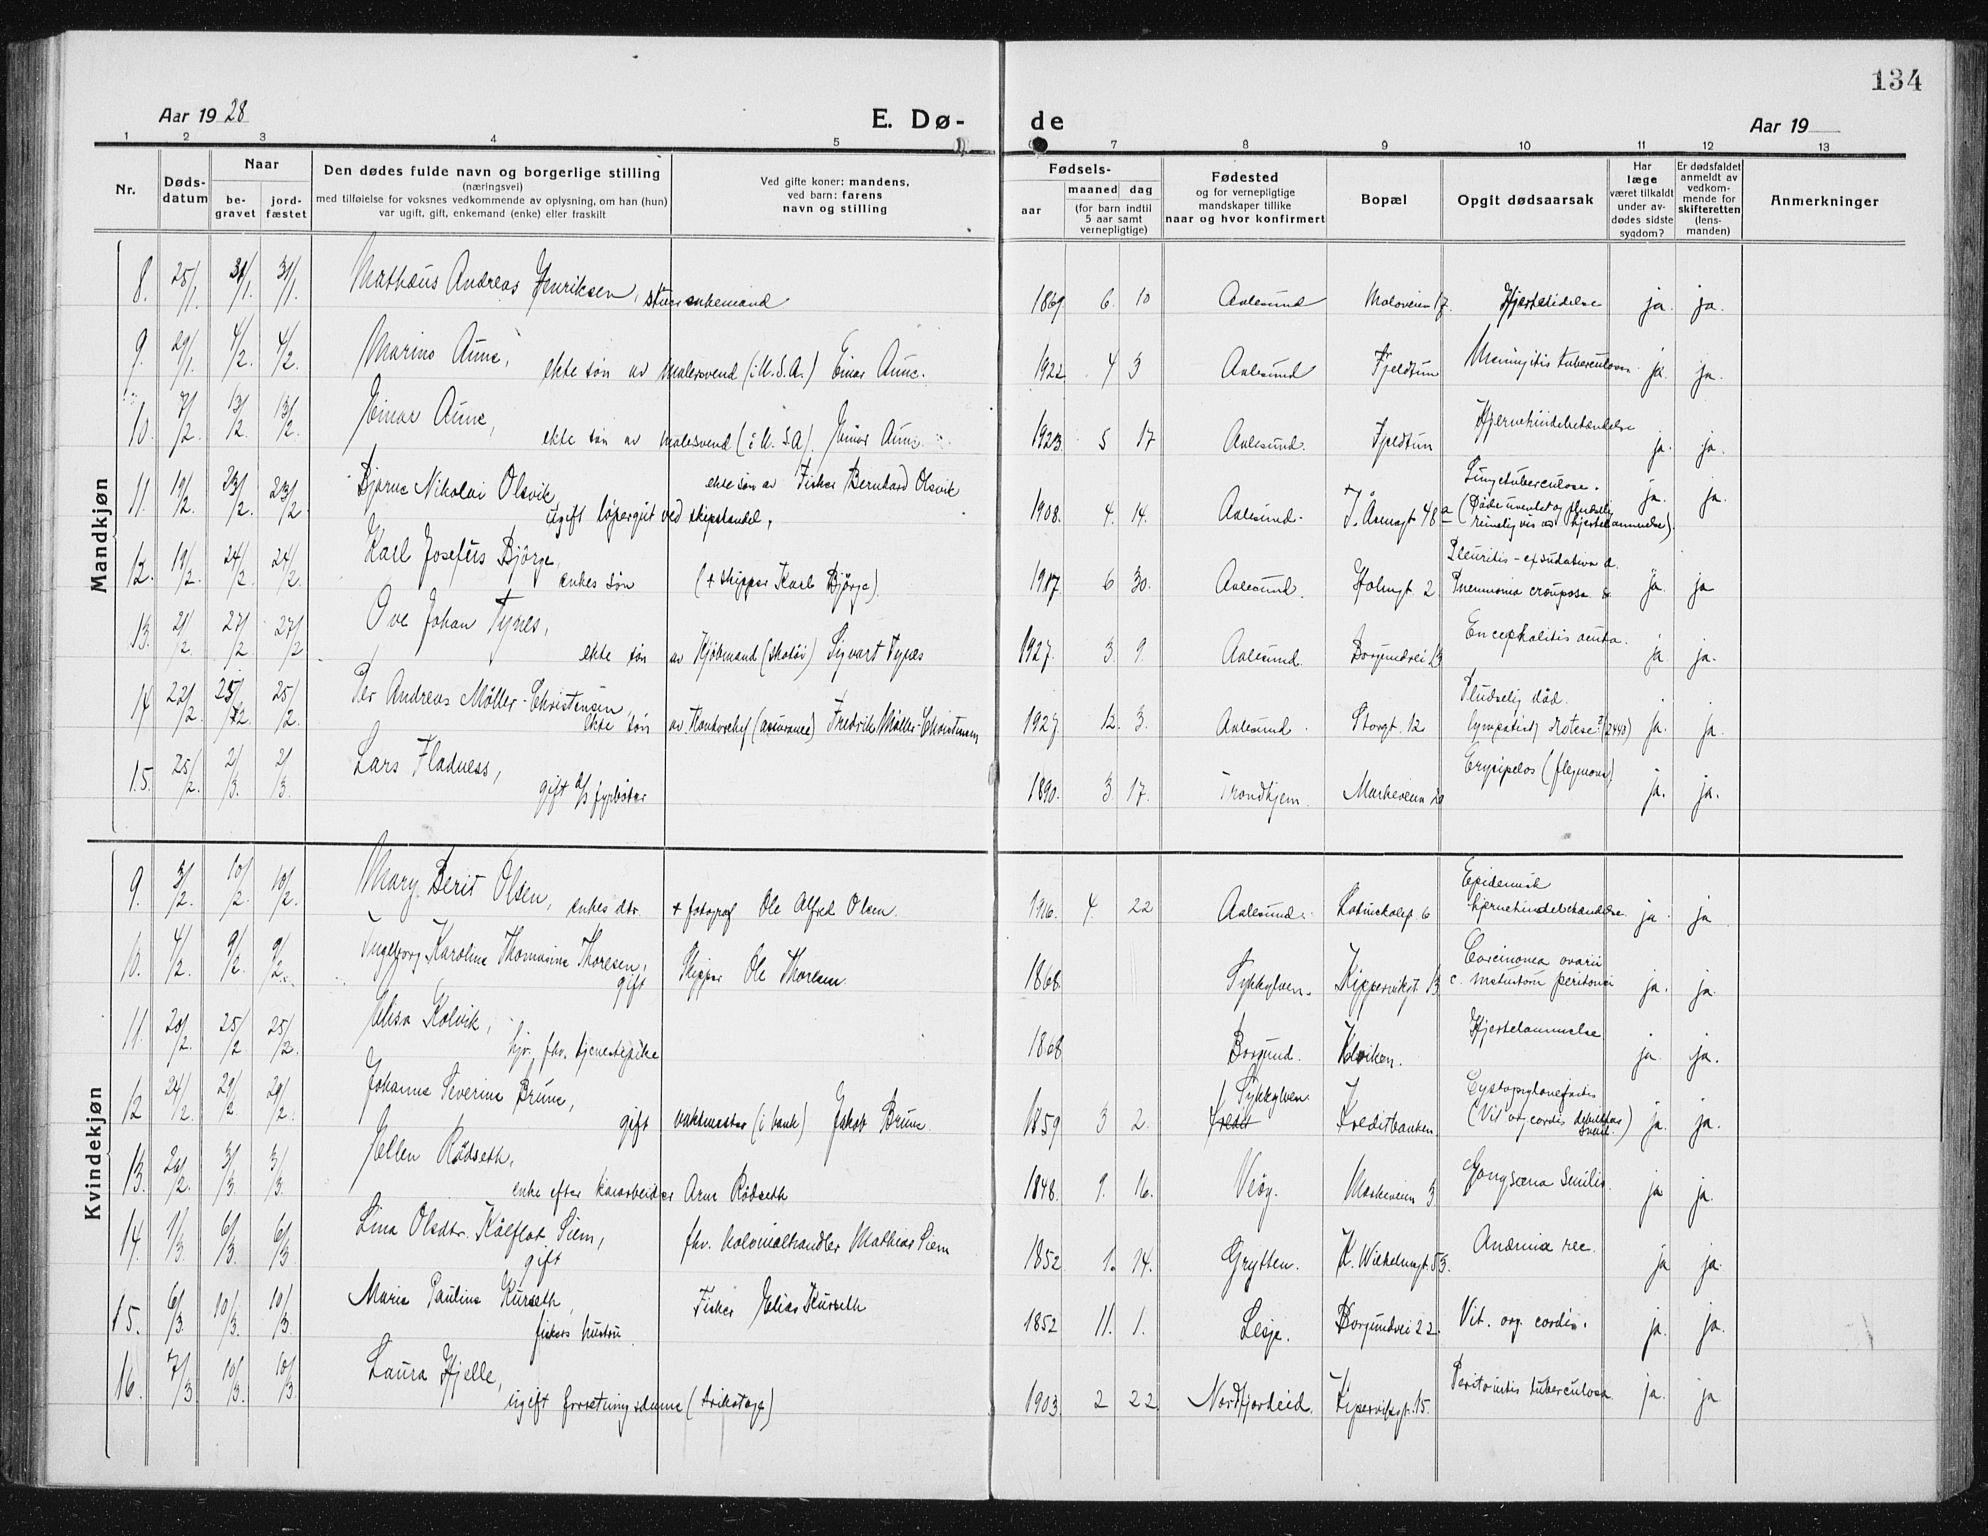 134
Aar 1928
E. Dø-
de
Aar 19
1 2 3 4 5 7 8 9 10 11 12 13
Nr.
Døds-
datum
Naar
be-
gravet
jord-
fæstet
Den dødes fulde navn og borgerlige stilling
(næringsvei)
med tilføielse for voksnes vedkommende av oplysning, om han (hun)
var ugift, gift, enkemand (enke) eller fraskilt
Ved gifte koner: mandens,
ved barn: farens
navn og stilling
Fødsels-
aar
maaned dag
(for barn indtil
5 aar samt
vernepligtige)
Fødested
og for vernepligtige
mandskaper tillike
naar og hvor konfirmert
Bopæl
Opgit dødsaarsak
Har
læge
været tilkaldt
under av-
dødes sidste
sygdom?
Er dødsfaldet
anmeldt av
vedkom-
mende for
skifteretten
(lens-
manden)
Anmerkninger
Mandkjøn
8. 25/1. 31/1. 31/1. Mathæus Andreas Henriksen, enkemand 1869 6. 10 Aalesund Moloveien 17. Hjertelidelse ja. ja.
9. 29/1. 4/2. 4/2. Marino Aune,
ekte søn av malersvend (i U.S.A.) Einar Aune. 1922 4 3 Aalesund Fjeldtun Meningitis tuberculosa ja. ja.
10. 7/2. 13/2. 13/2. Einar Aune,
ekte søn av malersvend (i U.S.A). Einar Aune 1923. 5 17 Aalesund. Fjeldtun Hjernehindebetændelse ja. ja.
11. 19/2. 23/2. 23/2. Bjarne Nikolai Olsvik ekte søn av Fisker Bernhard Olsvik
ugift løpergut ved skipshandel, 1908. 4. 14. Aalesund. Aasengt. 48 a Lungetuberculose. (Døde uventet og pludselig rimeligvis av hjertelammelse). ja. ja.
12. 19/2. 24/2. 24/2. Karl Josefus Bjørge,
enkes søn (+ skipper Karl Bjørge). 1917 6 30. Aalesund. Holmgt. 2 Pleuritis - exsudativa d. Pneumonia crouposa ja. ja
13. 21/2. 27/2. 27/2 Ove Johan Tynes,
ekte søn av Kjøbmand (skotøi) Sigvart Tynes 1927. 3. 9. Aalesund. Borgundvei 13 Encephalitis acuta. ja ja.
14 22/2. 25/2. 25/2. Per Andreas Møller-Christensen
ekte søn av Kontorchef (assurance) Fredrik Møller-Christensen 1927 12. 3. Aalesund. Storgt. 12 Pludselig død. ja. ja.
15. 25/2. 2/3. 2/3. Lars Fladness,
gift fyrbøter 1890. 3. 17. Trondhjem. Markeveien Erysipelas (flegmone) ja. ja.
Kvindekjøn
9. 3/2. 10/2. 10/2. Mary Berit Olsen, enkes dtr. + fotograf Ole Alfred Olsen. 1916. 4. 22 Aalesund. Latinskolegt. 6 Epidemisk hjernehindebetændelse. ja. ja
10. 4/2. 9/2. 9/2. Ingeborg Karoline Thomasine Thoresen,
gift Skipper Ole Thoresen 1868. Sykkylven. Kippervikgt. 13 Carcinoma ovarii c. metastom peritonei ja. ja.
11. 20/2. 25/2 25/2. Elisa Kolvik,
fhv. tjenestepike 1868 Borgund. Kolviken. Hjertelammelse ja. ja.
12 24/2. 29/2. 29/2. Johanne Severine Brune,
gift vaktmester (i bank) Jakob Brune. 1859 3 2. Sykkylven Kreditbanken. Cystopyelonefritis (Vit. org. cordis ja. ja.
13. 26/2. 3/3. 3/3. Ellen Rødseth,
enke efter havnarbeider Arne Rødseth 1848. 9. 16. Veøy. Markeveien 3 Gangræna senilis. ja ja.
14. 1/3. 6/3. 6/3. Lina Olsdtr. Kålflot Siem,
gift fhv. kolonialhandler Mathias Siem 1852 1. 14. Grytten. K. Wilhelmsgt. 53. Anæmia ja ja.
15. 6/3. 10/3. 10/3. Marie Pauline Kurseth,
fiskers hustru Fisker Elias Kurseth 1852 11. 1. Lesje. Borgundvei 22. Vit. org. cordis. ja. ja.
16. 7/3. 10/3. 10/3. Laura Hjelle,
ugift forretningsdame (trikotage) 1903. 2 22 Nordfjordeid. Kipervikgt. 15. Peritonitis tuberculosa ja. ja